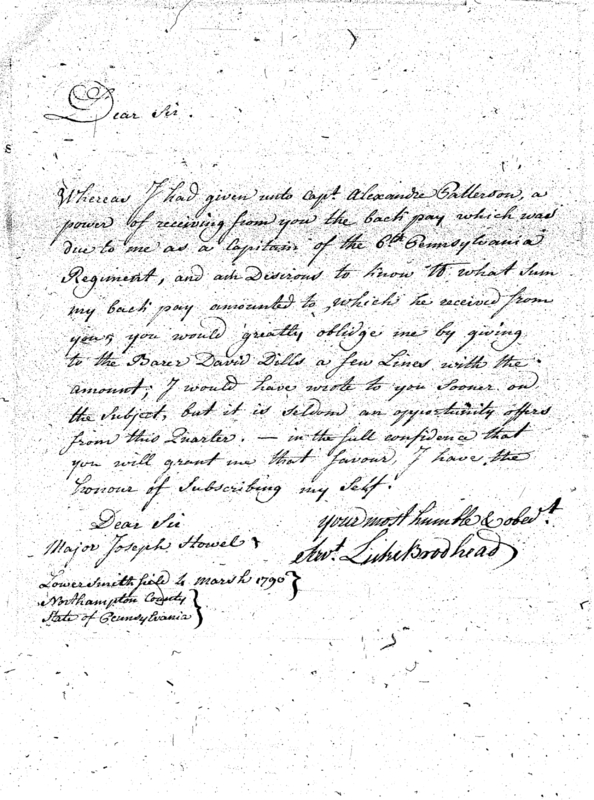 Dear Sir.
Whereas I had given unto Capt. Alexandre Patterson, a
power of receiving from you the back pay which was
due to me as a Capitain of the 6th Pennsylvania
Regiment, and am Discrous to know to what Sum
my back pay amounted to, which he received from
you, you would greatly oblidge me by giving
to the Barer David Dills a few Lines with the
amount; I would have wrote to you Sooner on
the Subject, but it is seldom an opportunity offers
from this Quarter. — in the full confidence that
you will grant me that favour, I have the
honour of Subscribing my Self.
Dear Sir
your most humble & obedt.
Major Joseph Howel
Servt. Luke Brodhead
Lower Smithfield 4 march 1790
Northampton County
State of Pennsylvania